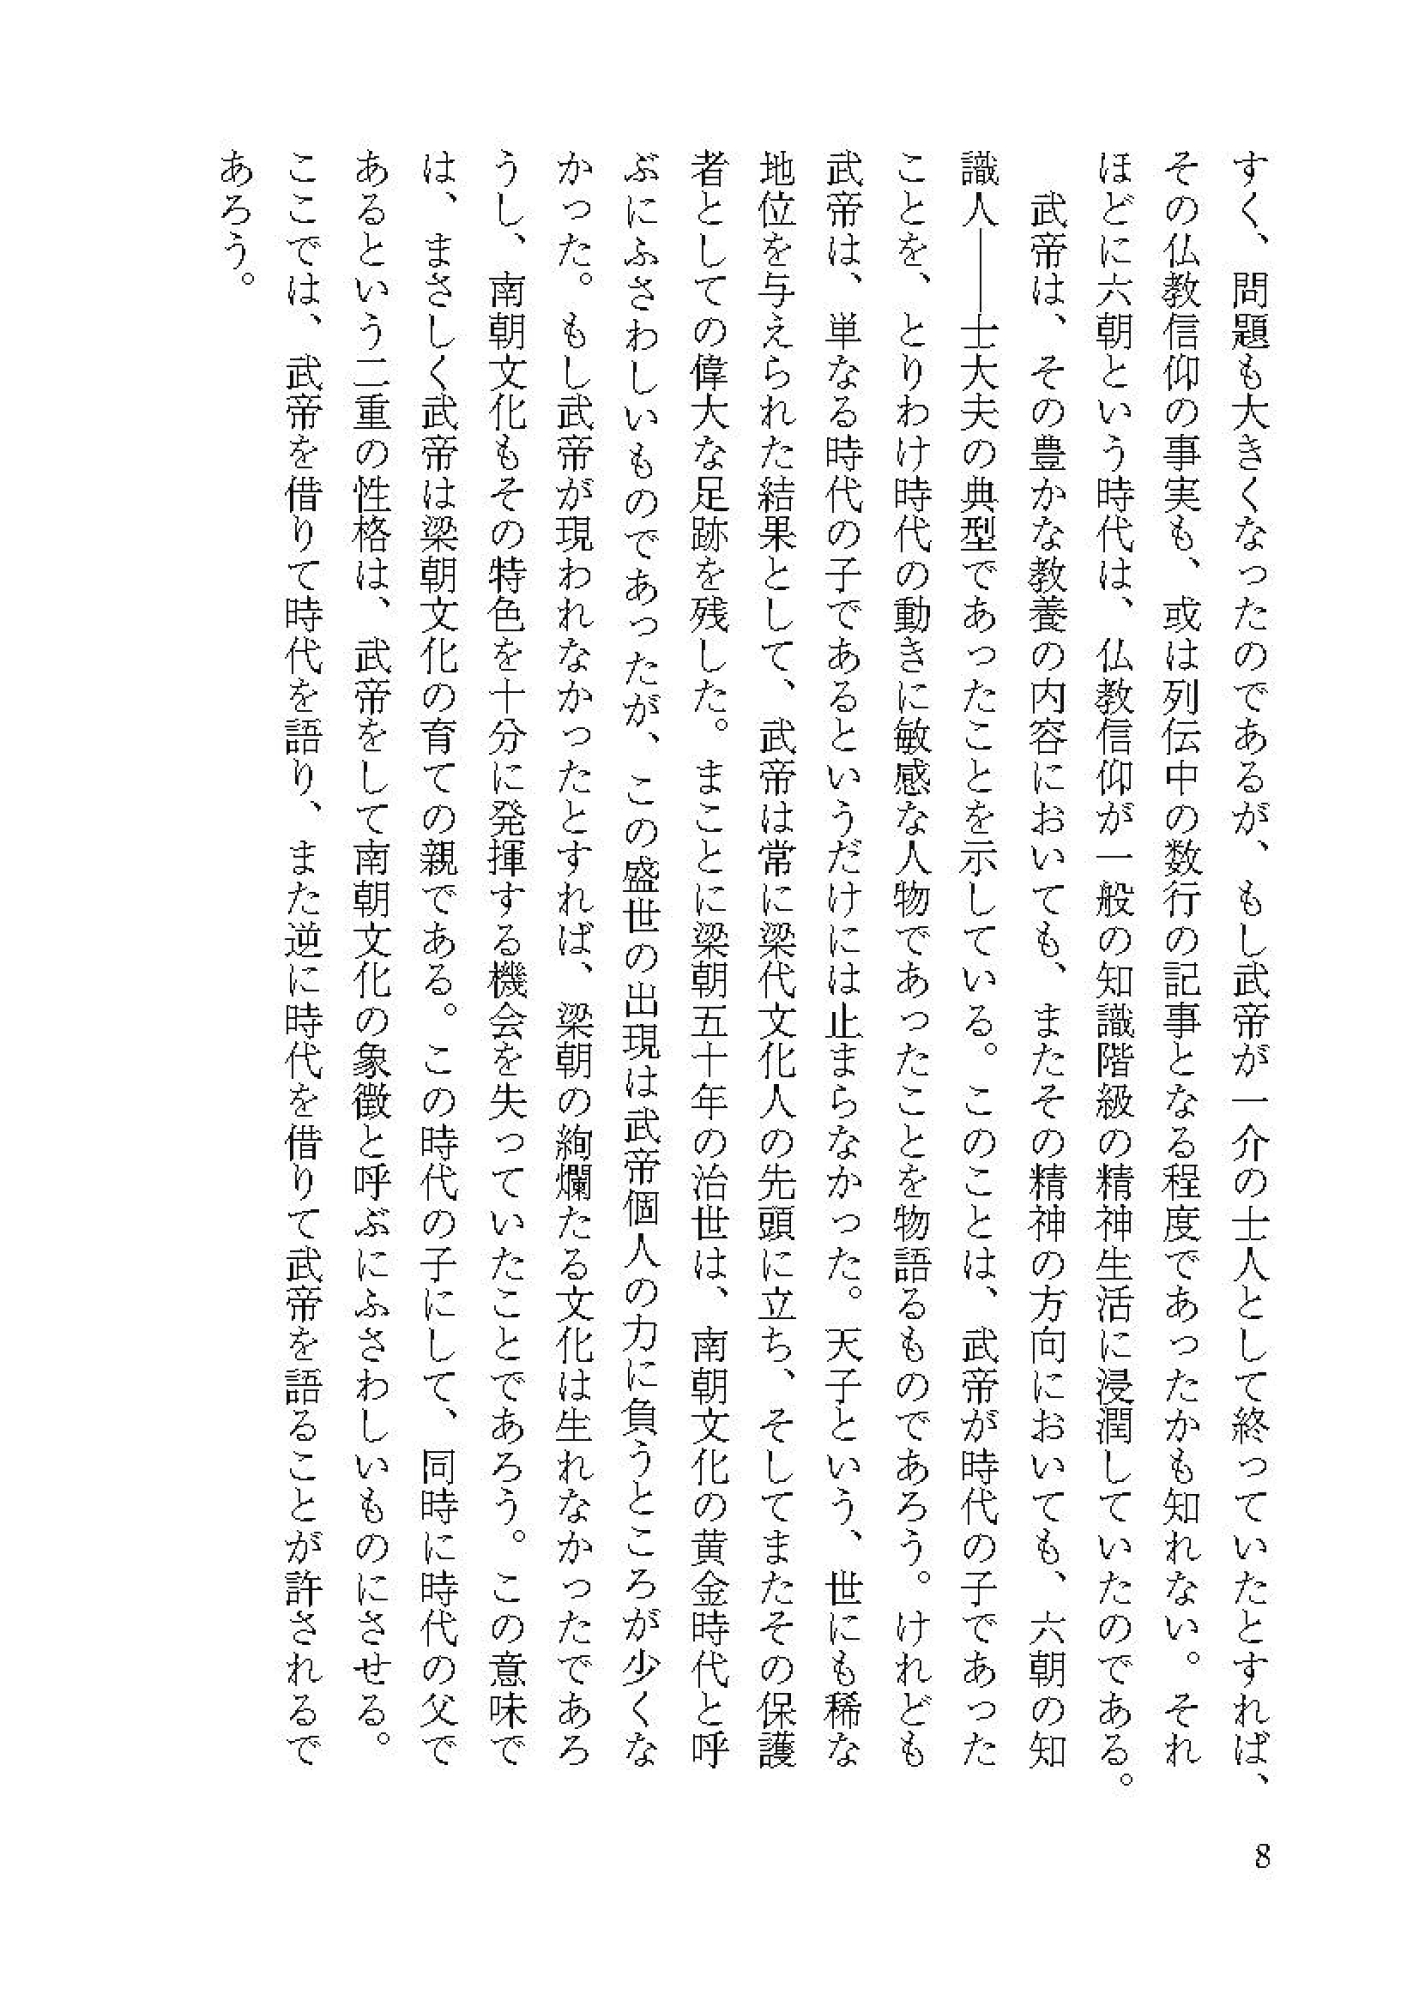 すく、問題も大きくなったのであるが、もし武帝が一介の士人として終っていたとすれば、
その仏教信仰の事実も、或は列伝中の数行の記事となる程度であったかも知れない。それ
ほどに六朝という時代は、仏教信仰が一般の知識階級の精神生活に浸潤していたのである。
　武帝は、その豊かな教養の内容においても、またその精神の方向においても、六朝の知
識人――士大夫の典型であったことを示している。このことは、武帝が時代の子であった
ことを、とりわけ時代の動きに敏感な人物であったことを物語るものであろう。けれども
武帝は、単なる時代の子であるというだけには止まらなかった。天子という、世にも稀な
地位を与えられた結果として、武帝は常に梁代文化人の先頭に立ち、そしてまたその保護
者としての偉大な足跡を残した。まことに梁朝五十年の治世は、南朝文化の黄金時代と呼
ぶにふさわしいものであったが、この盛世の出現は武帝個人の力に負うところが少くな
かった。もし武帝が現われなかったとすれば、梁朝の絢爛たる文化は生れなかったであろ
うし、南朝文化もその特色を十分に発揮する機会を失っていたことであろう。この意味で
は、まさしく武帝は梁朝文化の育ての親である。この時代の子にして、同時に時代の父で
あるという二重の性格は、武帝をして南朝文化の象徴と呼ぶにふさわしいものにさせる。
ここでは、武帝を借りて時代を語り、また逆に時代を借りて武帝を語ることが許されるで
あろう。
8